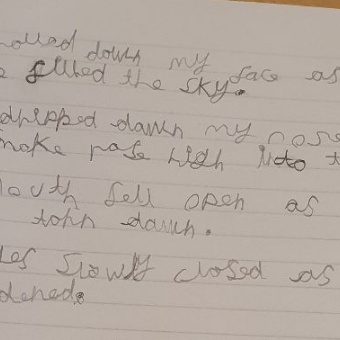 rolled down my face as
filled the sky.
dripped down my nose
smoke rose high into t
outh fell open as
torn down.
es slowly closed as
dened.